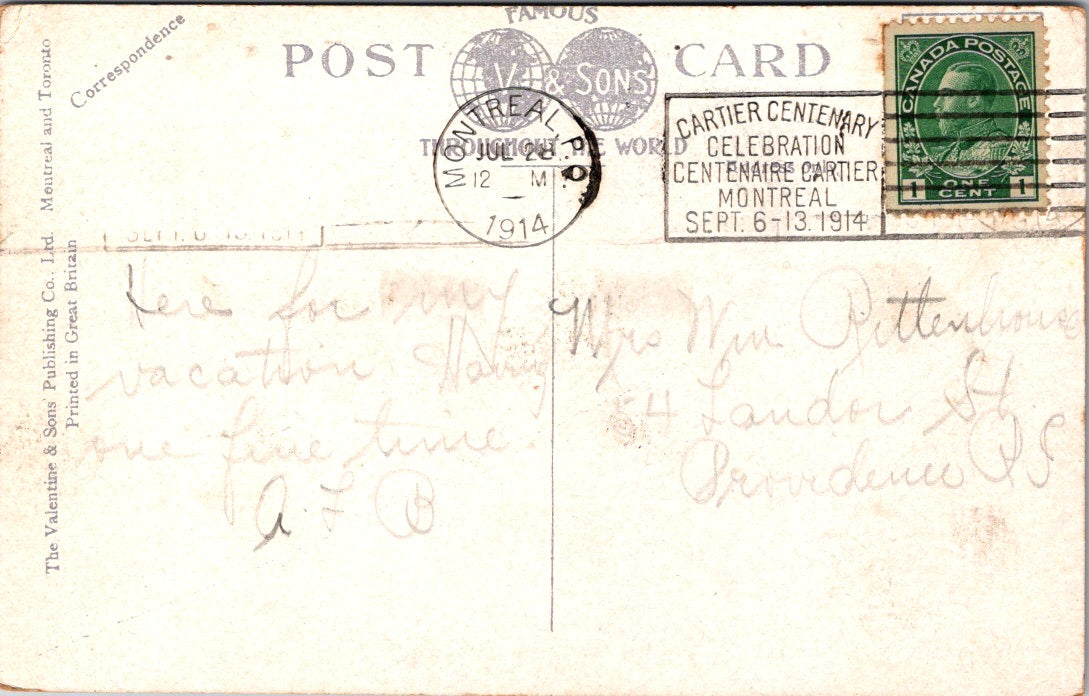 FAMOUS
POST CARD
V & SONS
THROUGHOUT THE WORLD
Correspondence
The Valentine & Sons' Publishing Co., Ltd. Montreal and Toronto
Printed in Great Britain
MONTREAL, P.Q.
JUL 28
12 M
1914
CARTIER CENTENARY
CELEBRATION
CENTENAIRE CARTIER
MONTREAL
SEPT. 6-13. 1914
CANADA POSTAGE
1 ONE CENT 1
SEPT. 6-13. 1914
Here for my
vacation. Having
one fine time.
A. F. B
Mrs Wm. Rittenhouse
54 Landor St
Providence